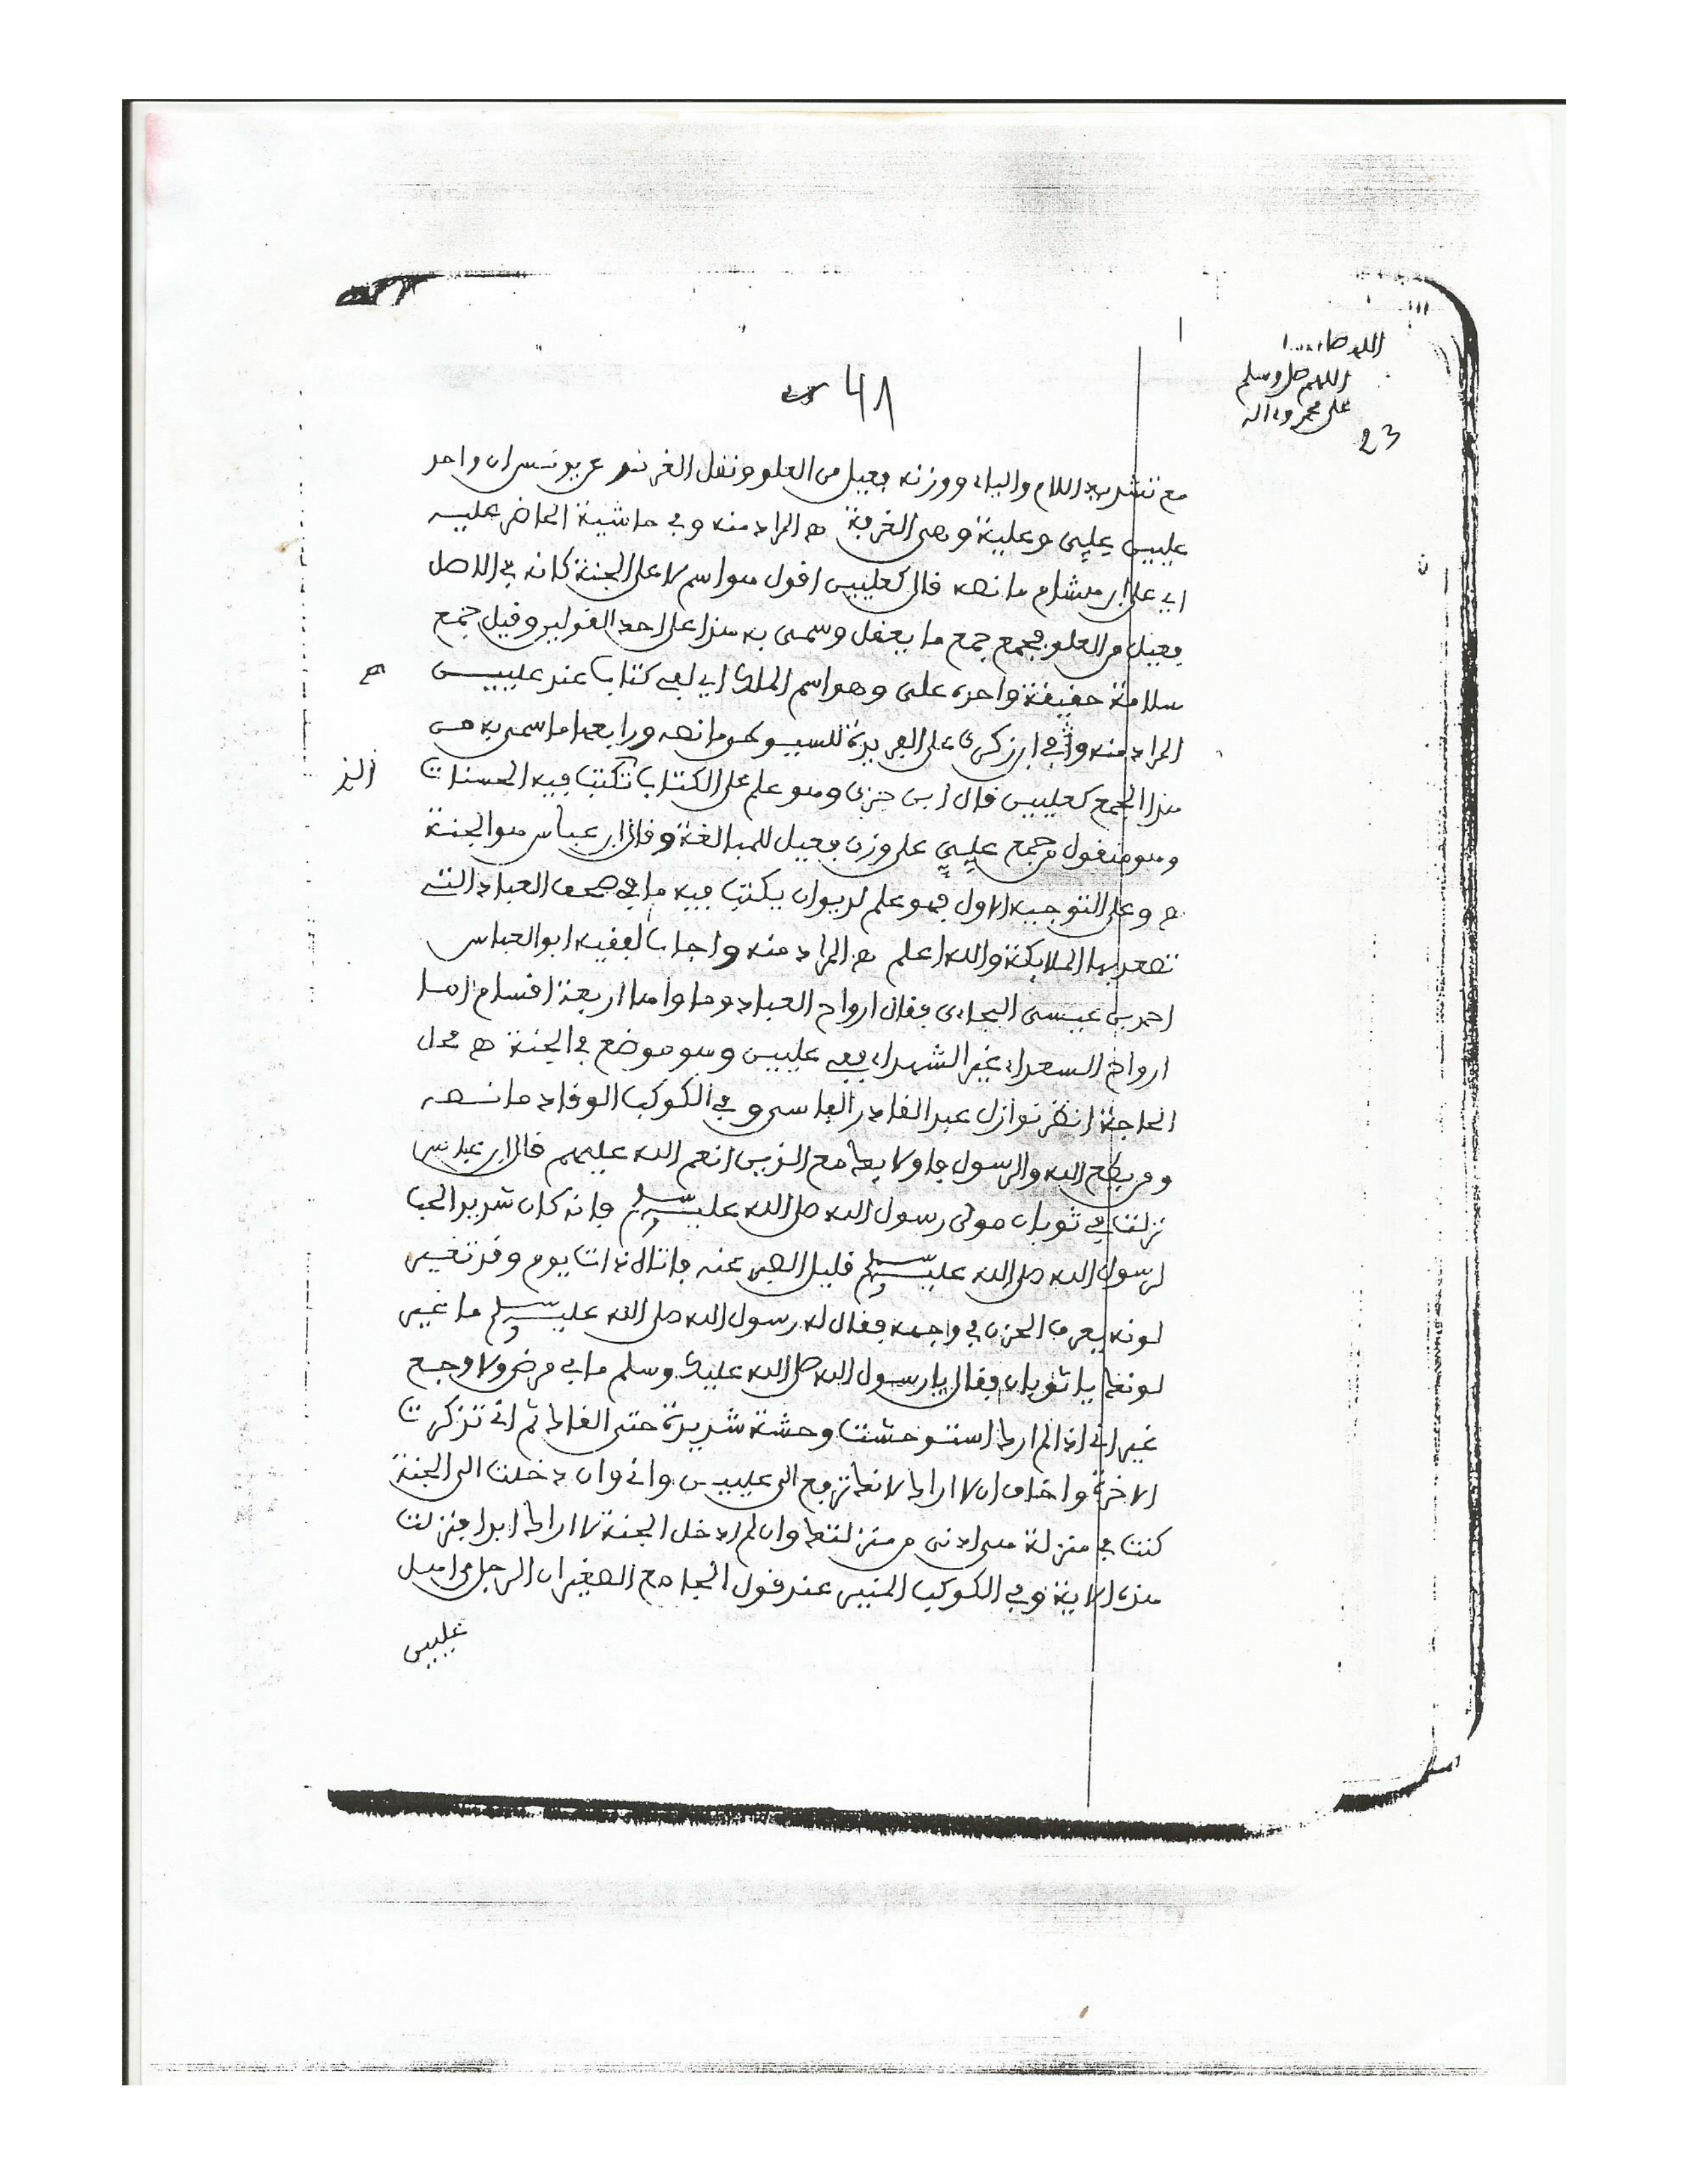 اللهم صل وسلم
على محمد وءاله
23
48
مع تشديد اللام والياء ووزنه فعيل من العلو ونقل عن يونس ان واحد
عليين علي وعلية وهي الغرفة ه المراد منه وفي حاشية
ابي علي ابن هشام ما نصه قال كعليين اقول هو اسم لاعلى الجنة كانه في الاصل
فعيل من العلو فجمع جمع ما يعقل وسمى به هذا على احد القولين وقيل جمع
سلامة حقيقة واحده على وهو اسم الملك اي لفي كتاب عند عليين ه
المراد منه وفي ابن زكري على الفريدة للسيوطي ما نصه ورابعها ما سمي به من
هذا الجمع كعليين قال ابن جزي وهو علم على الكتاب الذي تكتب فيه الحسنات
وهو منقول من جمع علي على وزن فعيل للمبالغة وقال ابن عباس هو الجنة
ه وعلى التوجيه الاول فهو علم لديوان يكتب فيه ما في صحف العباد التي
تصعد بها الملايكة والله اعلم ه المراد منه واجاب الفقيه ابو العباس
احمد بن عيسى البجاءي فقال ارواح العباد وماواها اربعة اقسام اما
ارواح السعداء غير الشهداء ففي عليين وهو موضع في الجنة ه محل
الحاجة انظر نوازل عبد القادر الفاسي وفي الكوكب الوقاد ما نصه
ومن يطع الله والرسول فاولايك مع الذين انعم الله عليهم قال ابن عباس
نزلت في ثوبان مولى رسول الله صلى الله عليه وسلم فانه كان شديد الحب
لرسول الله صلى الله عليه وسلم قليل الصبر عنه فاتاه ذات يوم وقد تغير
لونه يعرف الحزن في وجهه فقال له رسول الله صلى الله عليه وسلم ما غير
لونك يا ثوبان فقال يا رسول الله صلى الله عليك وسلم ما بي مرض ولا وجع
غير اني اذا لم ارك استوحشت وحشة شديدة حتى القاك ثم اني تذكرت
الاخرة واخاف ان لا اراك لانك ترفع الى عليين واني وان دخلت الى الجنة
كنت في منزلة هي ادنى من منزلتك وان لم ادخل الجنة لا اراك ابدا فنزلت
هذه الاية وفي الكوكب المنير عند قول الجامع الصغير ان الرجل من اهل
عليين